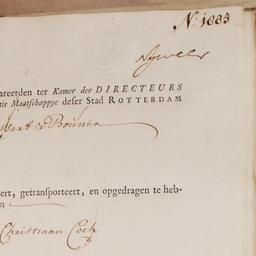 N.º 1883
areerden ter Kamer der DIRECTEURS
tie Maatschappye deser Stad ROTTERDAM
Bouwen
ert, getransporteert, en opgedragen te heb-
n
Christiaan Coch